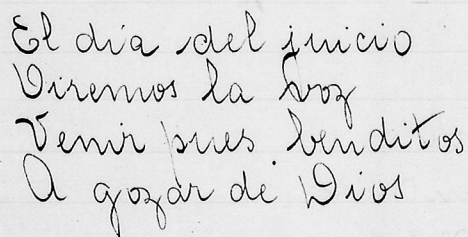 El dia del juicio
Oiremos la voz
Venir pues benditos
A gozar de Dios